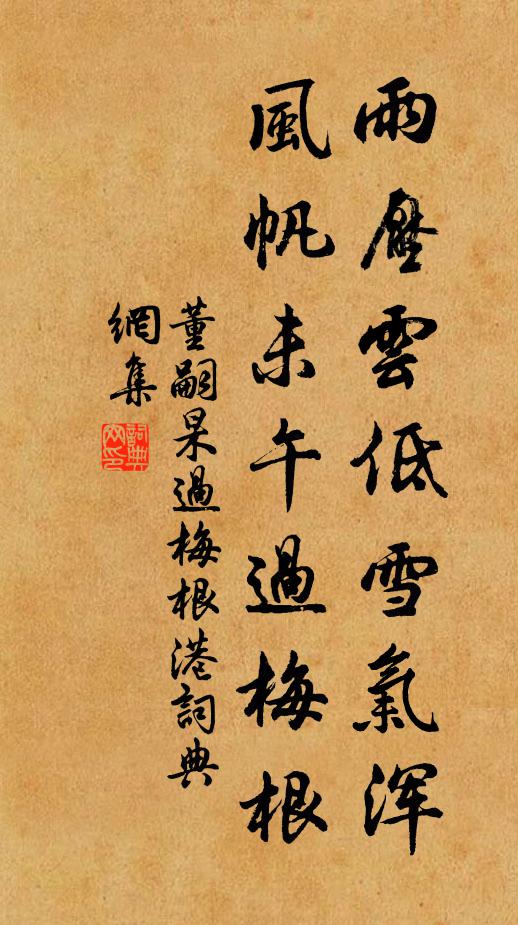 雨壓雲低雪氣渾
風帆未午過梅根
董嗣杲過梅根港詞典
網集
詞典
网印